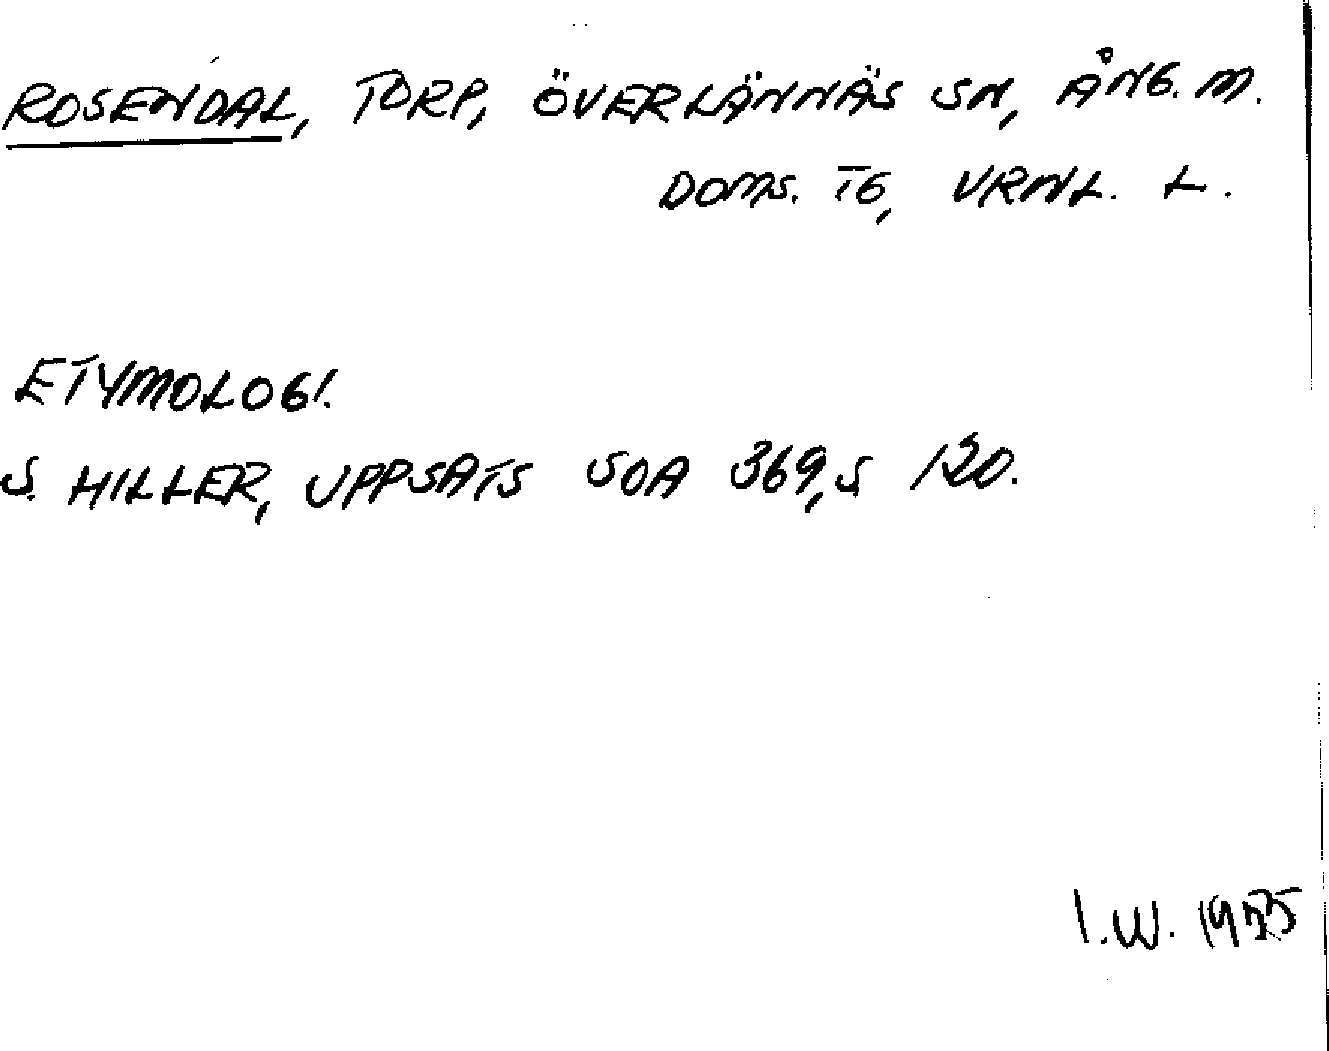 ROSENDAL, TORP, ÖVERLÄNNÄS SN, ÅNG. M.
DOMS. TG, VRNL. L.
ETYMOLOGI.
S. HILLER, UPPSATS SOA 369, S 120.
I.W. 1955